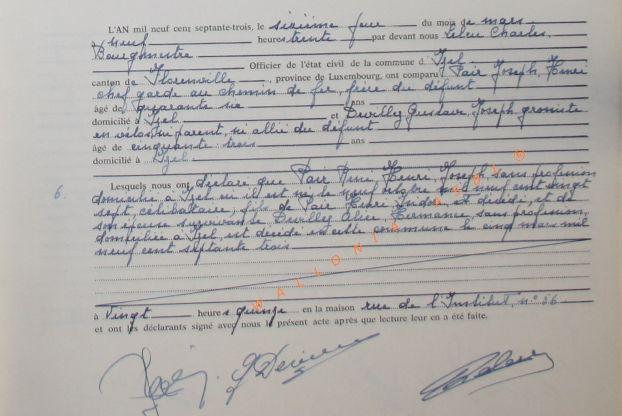 L'AN mil neuf cent septante-trois, le sixième jour du mois de mars
neuf heures trente par devant nous Leleu Charles,
Bourgmestre
Officier de l'état civil de la commune d'Izel
canton de Florenville, province de Luxembourg, ont comparu Pair Joseph, Henri
chef garde au chemin de fer, frère du défunt
âgé de quarante ans
domicilié à Izel et Devilly Gustave, Joseph, grossiste
en vélos, ni parent, ni allié du défunt
âgé de cinquante trois ans
domicilié à Izel
6. Lesquels nous ont déclaré que Pair René, Henri, Joseph, sans profession
domicilié à Izel où il est né le neuf octobre mil neuf cent vingt
sept, célibataire, fils de Pair Henri Isidore et décédé, et de
son épouse survivante Devilly Alice, Hermance, sans profession,
domiciliée à Izel, est décédé en cette commune le cinq mars mil
neuf cent septante trois
à vingt heures quinze en la maison rue de l'Institut, n° 56
et ont les déclarants signé avec nous le présent acte après que lecture leur en a été faite.
WALLONIA ASBL ®